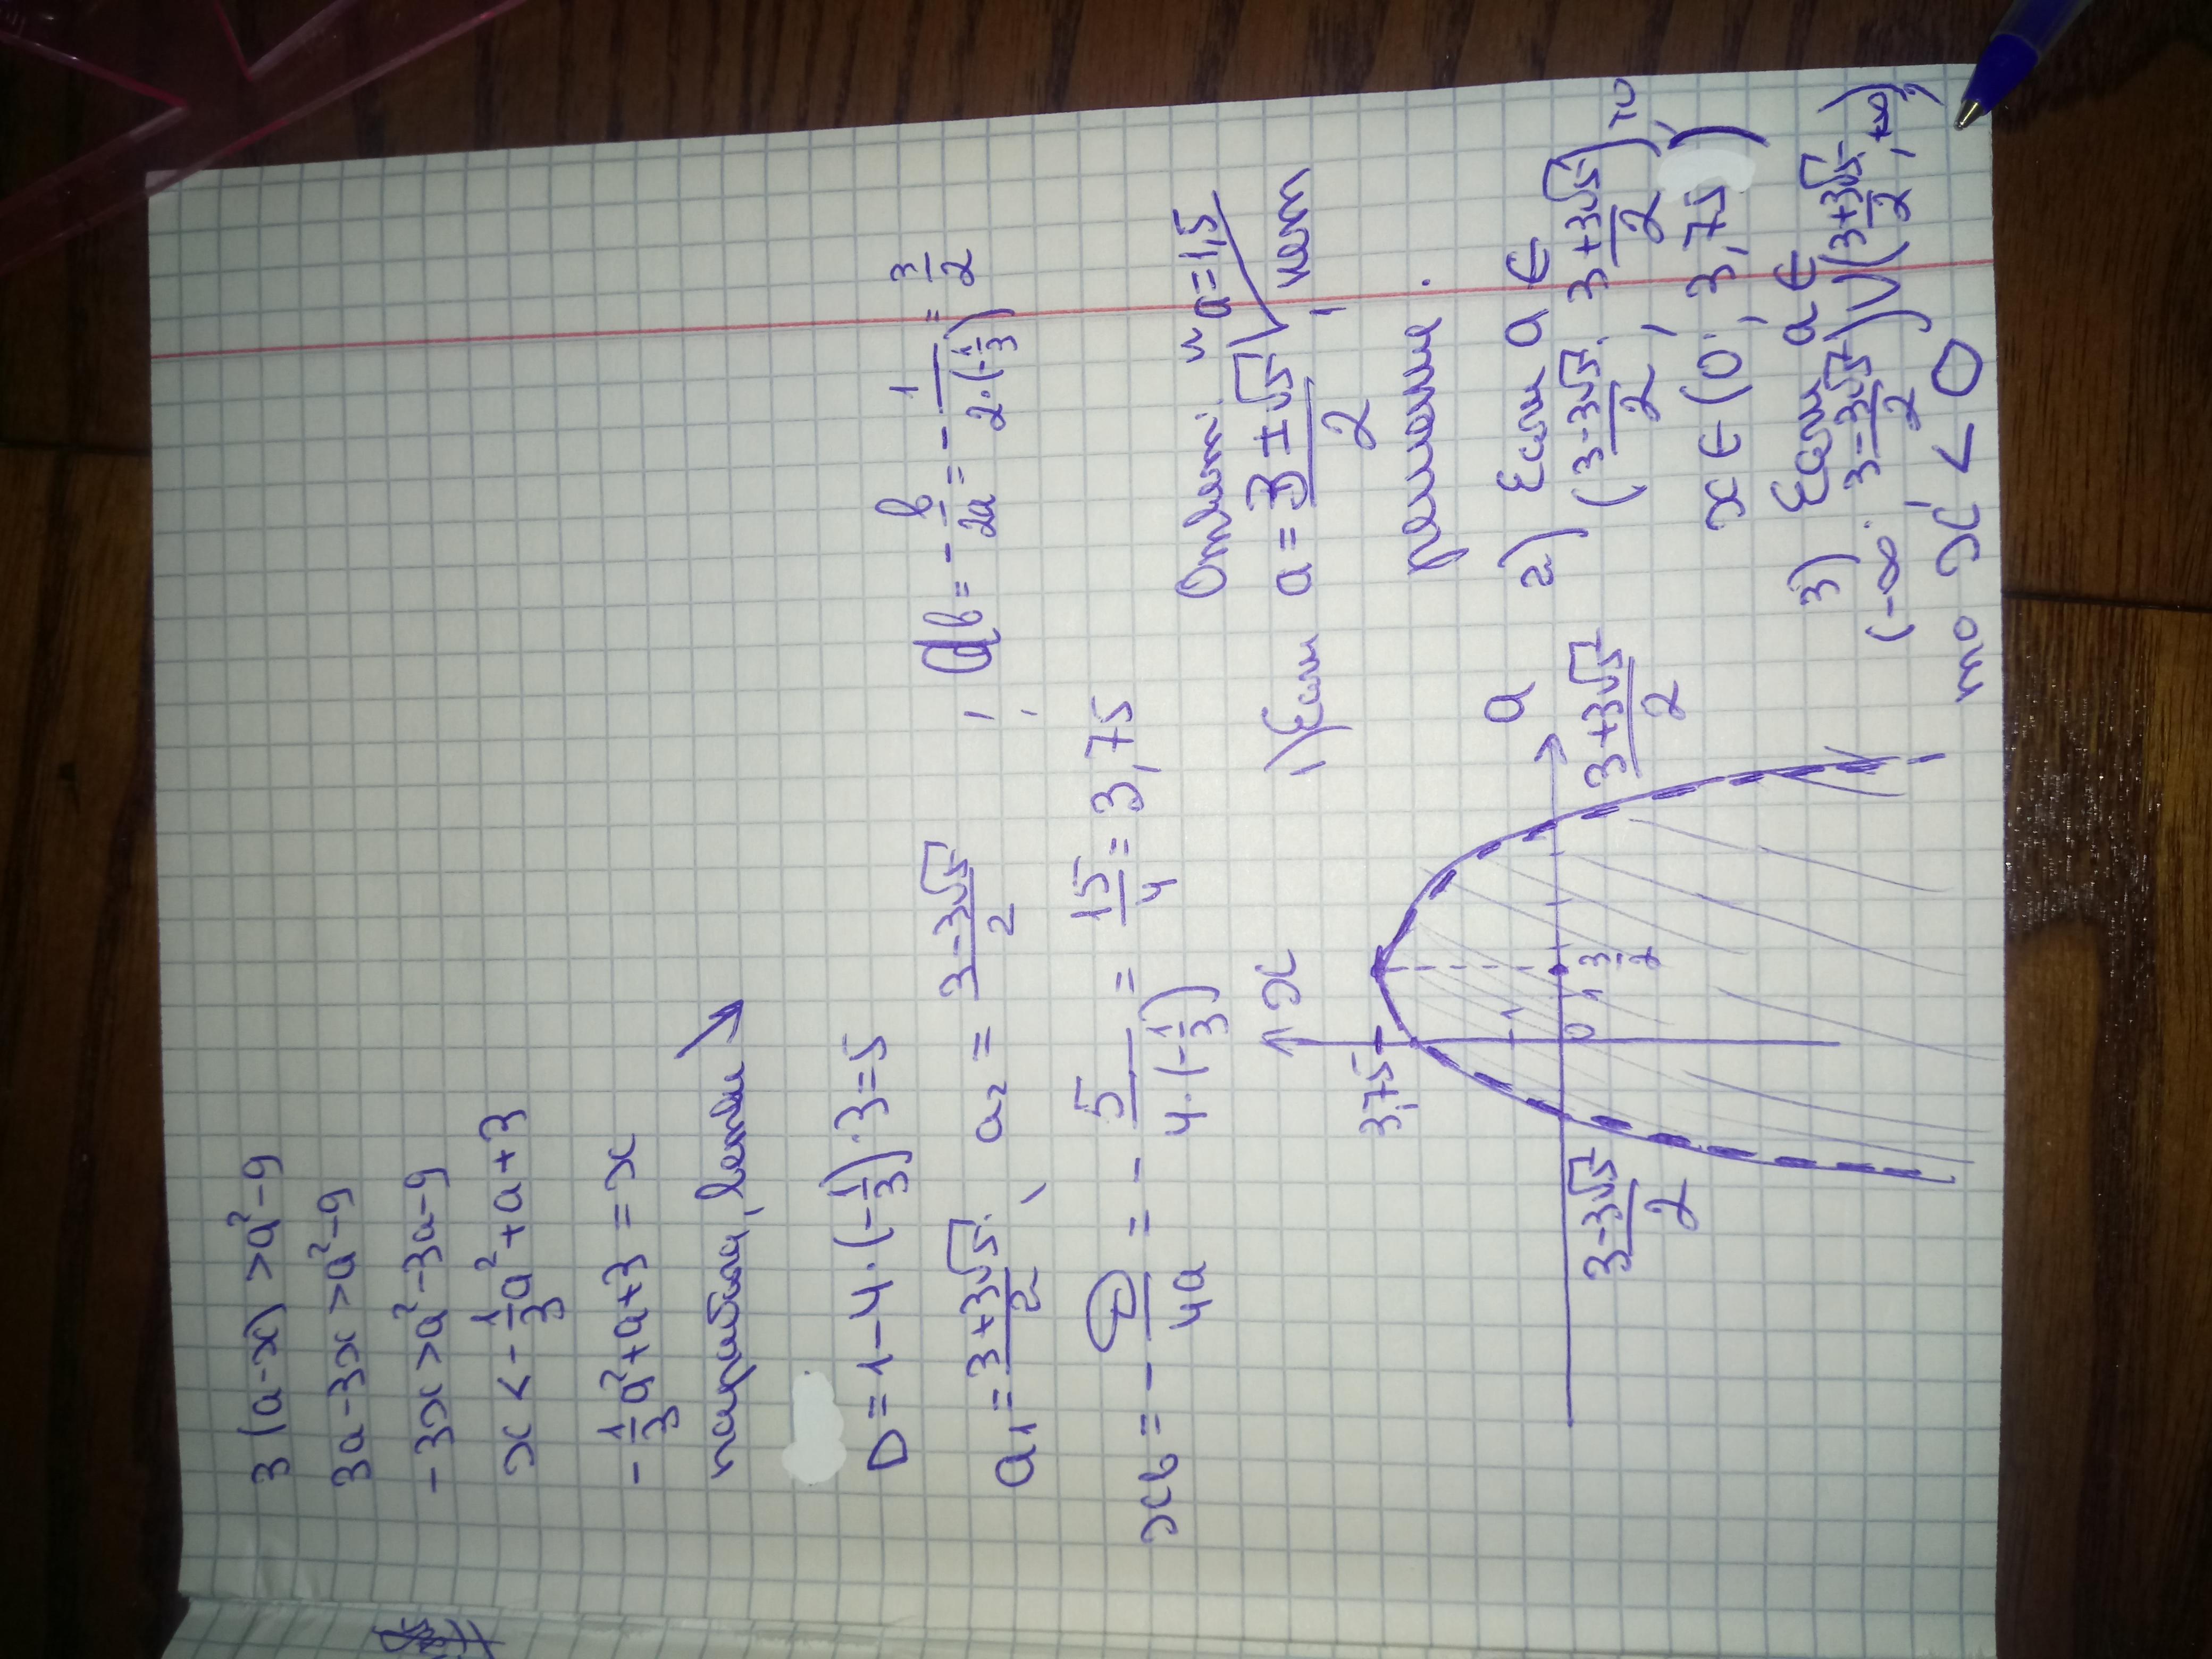 3(a-x) > a²-9
3a-3x > a²-9
-3x > a²-3a-9
x < -1/3 a²+a+3
-1/3 a²+a+3 = x
парабола, ветви ↘
D = 1-4·(-1/3)·3=5
a₁ = (3+3√5)/2; a₂ = (3-3√5)/2; aв = -b/2a = -1/(2·(-1/3)) = 3/2
xв = -D/4a = -5/(4·(-1/3)) = 15/4 = 3,75
x
3,75
1
0
1
3/2
a
(3-3√5)/2
(3+3√5)/2
Ответ:
1) Если a = (3±3√5)/2 и a=1,5, нет
решение.
2) Если a ∈
((3-3√5)/2; (3+3√5)/2), то
x ∈ (0; 3,75)
3) Если a ∈
(-∞; (3-3√5)/2)∪((3+3√5)/2; +∞),
то x < 0